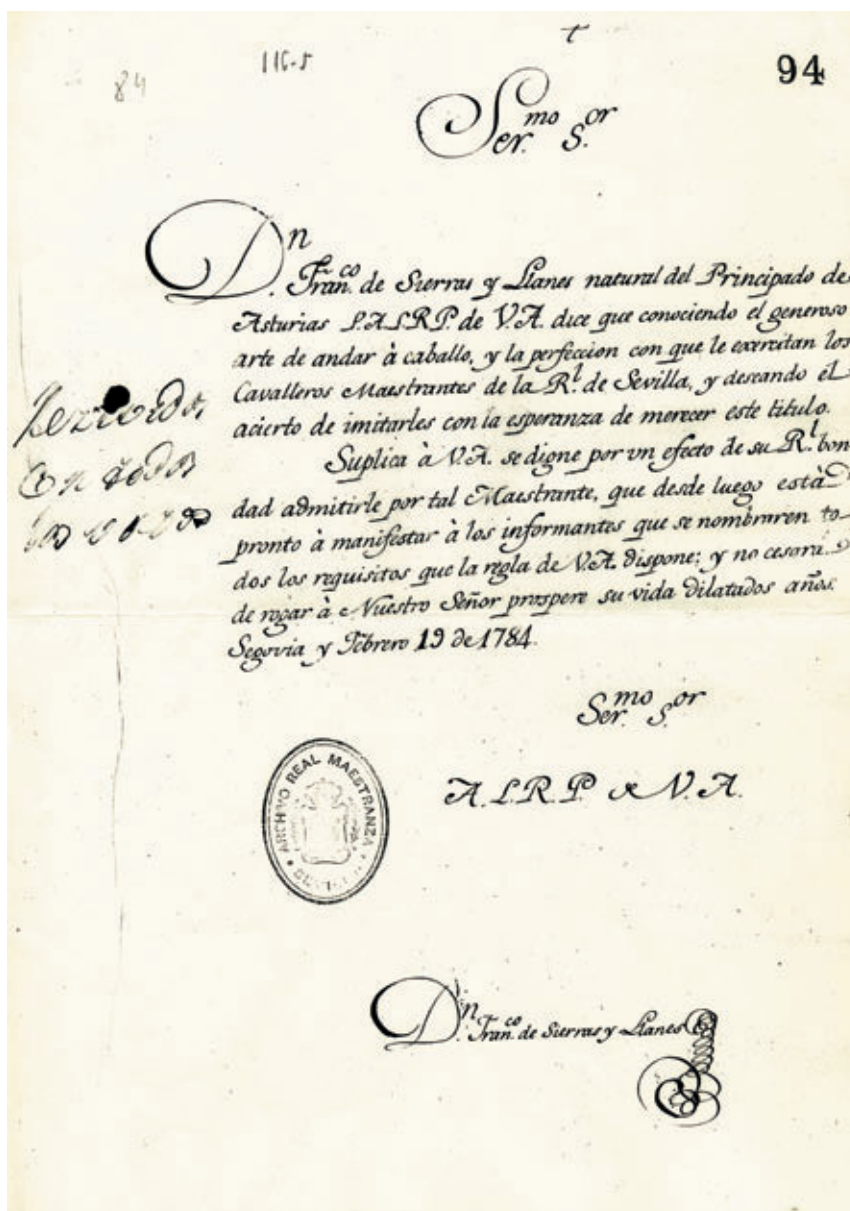 84
116-5
94
Ser.mo S.or
D.n Fran.co de Sierras y Llanes natural del Principado de
Asturias P.A.L.R.P. de V.A. dice que conociendo el generoso
arte de andar à caballo, y la perfeccion con que le exercitan los
Cavalleros Maestrantes de la R.l de Sevilla, y deseando el
acierto de imitarles con la esperanza de merecer este titulo.
Suplica à V.A. se digne por vn efecto de su R.l bon
dad admitirle por tal Maestrante, que desde luego està
pronto à manifestar à los informantes que se nombraren to-
dos los requisitos que la regla de V.A. dispone; y no cesarà
de rogar à Nuestro Señor prospere su vida dilatados años.
Segovia y Febrero 19 de 1784.
Rezivido
con todos
Ser.mo S.or
A.L.R.P. de V.A.
ARCHIVO REAL MAESTRANZA
D.n Fran.co de Sierras y Llanes